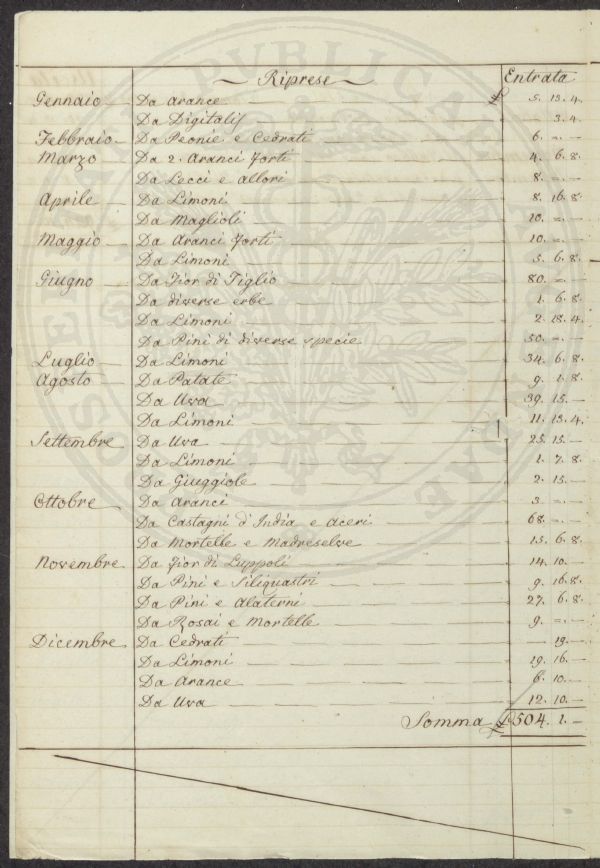 Riprese Entrata
Gennaio Da Arance 5. 13. 4.
Da Digitalis — 3. 4.
Febbraio Da Peonie e Cedrati 6. =. —
Marzo Da 2. Aranci forti 4. 6. 8.
Da Lecci e Allori 8. =. —
Aprile Da Limoni 8. 16. 8.
Da Maglioli 10. =. —
Maggio Da Aranci forti 10. =. —
Da Limoni 5. 6. 8.
Giugno Da Fior di Tiglio 80. =. —
Da diverse erbe 1. 6. 8.
Da Limoni 2. 13. 4.
Da Pini di diverse specie 50. =. —
Luglio Da Limoni 34. 6. 8.
Agosto Da Patate 9. 1. 8.
Da Uva 39. 15. —
Da Limoni 11. 13. 4.
Settembre Da Uva 25. 15. —
Da Limoni 1. 7. 8.
Da Giuggiole 2. 15. —
Ottobre Da Aranci 3. =. —
Da Castagni d'India e Aceri 68. =. —
Da Mortelle e Madreselve 15. 6. 8.
Novembre Da Fior di Luppoli 14. 10. —
Da Pini e Siliquastri 9. 16. 8.
Da Pini e Alaterni 27. 6. 8.
Da Rosai e Mortelle 9. =. —
Dicembre Da Cedrati — 19. —
Da Limoni 19. 16. —
Da Arance 6. 10. —
Da Uva 12. 10. —
Somma £ 504. 1. —